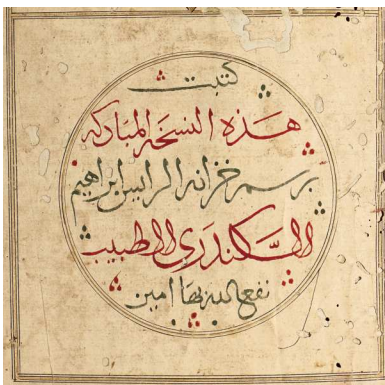 كتبت
هذه النسخة المباركه
برسم خزانه الرايس ابراهيم
السكندري الطبيب
نفع الله بها امين